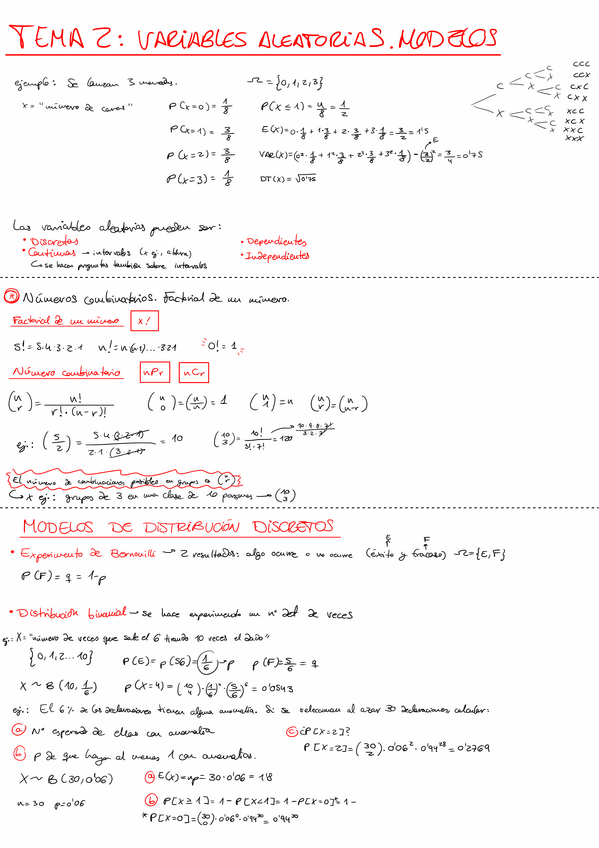 TEMA 2: VARIABLES ALEATORIAS. MODELOS
ejemplo: Se lanzan 3 monedas. Ω = {0,1,2,3}
x = "número de caras" P(x=0) = 1/8 P(x≤1) = 4/8 = 1/2
P(x=1) = 3/8 E(x) = 0·1/8 + 1·3/8 + 2·3/8 + 3·1/8 = 3/2 = 1'5
E
P(x=2) = 3/8 VAR(x) = (0²·1/8 + 1²·3/8 + 2²·3/8 + 3²·1/8) - (3/2)² = 3/4 = 0'75
P(x=3) = 1/8 DT(x) = √0'75
C C C CCC
X CCX
X C CXC
X CXX
X C C XCC
X XCX
X C XXC
X XXX
Las variables aleatorias pueden ser:
• Discretas • Dependientes
• Continuas → intervalos (x ej., altura) • Independientes
↳ se hacen preguntas también sobre intervalos
* Números combinatorios. Factorial de un número.
Factorial de un número x!
5! = 5·4·3·2·1 n! = n·(n-1)·...·3·2·1 0! = 1
Número combinatorio nPr nCr
(n r) = n! / r!·(n-r)! (n 0) = (n n) = 1 (n 1) = n (n r) = (n n-r)
ej.: (5 2) = 5·4·(3·2·1) / 2·1·(3·2·1) = 10 (10 3) = 10! / 3!·7! = 120 10·9·8·7! / 3·2·7!
El número de combinaciones posibles en grupos es (n r)
↳ x ej.: grupos de 3 en una clase de 10 personas → (10 3)
MODELOS DE DISTRIBUCIÓN DISCRETOS
E F
• Experimento de Bernouilli → 2 resultados: algo ocurre o no ocurre (éxito y fracaso) Ω = {E,F}
P(F) = q = 1-p
• Distribución binomial → se hace experimento un nº det de veces
ej.: X = "número de veces que sale el 6 tirando 10 veces el dado"
{0,1,2...10} P(E) = p(S6) = 1/6 → p p(F) = 5/6 = q
X ~ B(10, 1/6) p(X=4) = (10 4)·(1/6)⁴·(5/6)⁶ = 0'0543
ej.: El 6% de las declaraciones tienen alguna anomalía. Si se seleccionan al azar 30 declaraciones calcular:
a Nº esperado de ellas con anomalía c ¿P[X=2]?
P[X=2] = (30 2)·0'06²·0'94²⁸ = 0'2769
b p de que haya al menos 1 con anomalías.
X ~ B(30, 0'06) a E(x) = np = 30·0'06 = 1'8
n=30 p=0'06 b P[X≥1] = 1 - P[X<1] = 1 - P[X=0]* = 1 -
* P[X=0] = (30 0)·0'06⁰·0'94³⁰ = 0'94³⁰